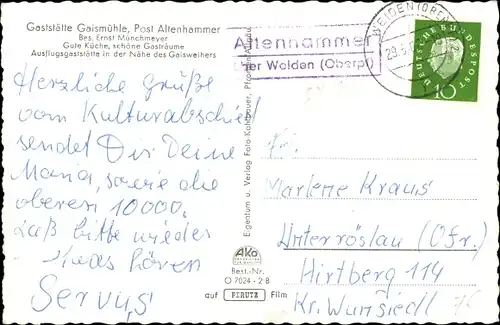 Gaststätte Gaismühle, Post Altenhammer
Bes. Ernst Münchmeyer
Gute Küche, schöne Gasträume
Ausflugsgaststätte in der Nähe des Gaisweihers
Herzliche Grüße
vom Kulturabschied
sendet Dir Deine
Maria, sowie die
oberen 10000.
Laß bitte wieder
etwas hören
Servus
Eigentum u. Verlag Foto-Kohlbauer, Pfronten/Allgäu
AKO
Best.-Nr.
O 7024 - 2 B
auf PERUTZ Film
Altenhammer
über Weiden (Oberpf)
WEIDEN
29.5.
DEUTSCHE BUNDESPOST
10
Fr.
Marlene Kraus
Unterröslau (Ofr.)
Hirtberg 114
Kr. Wunsiedl